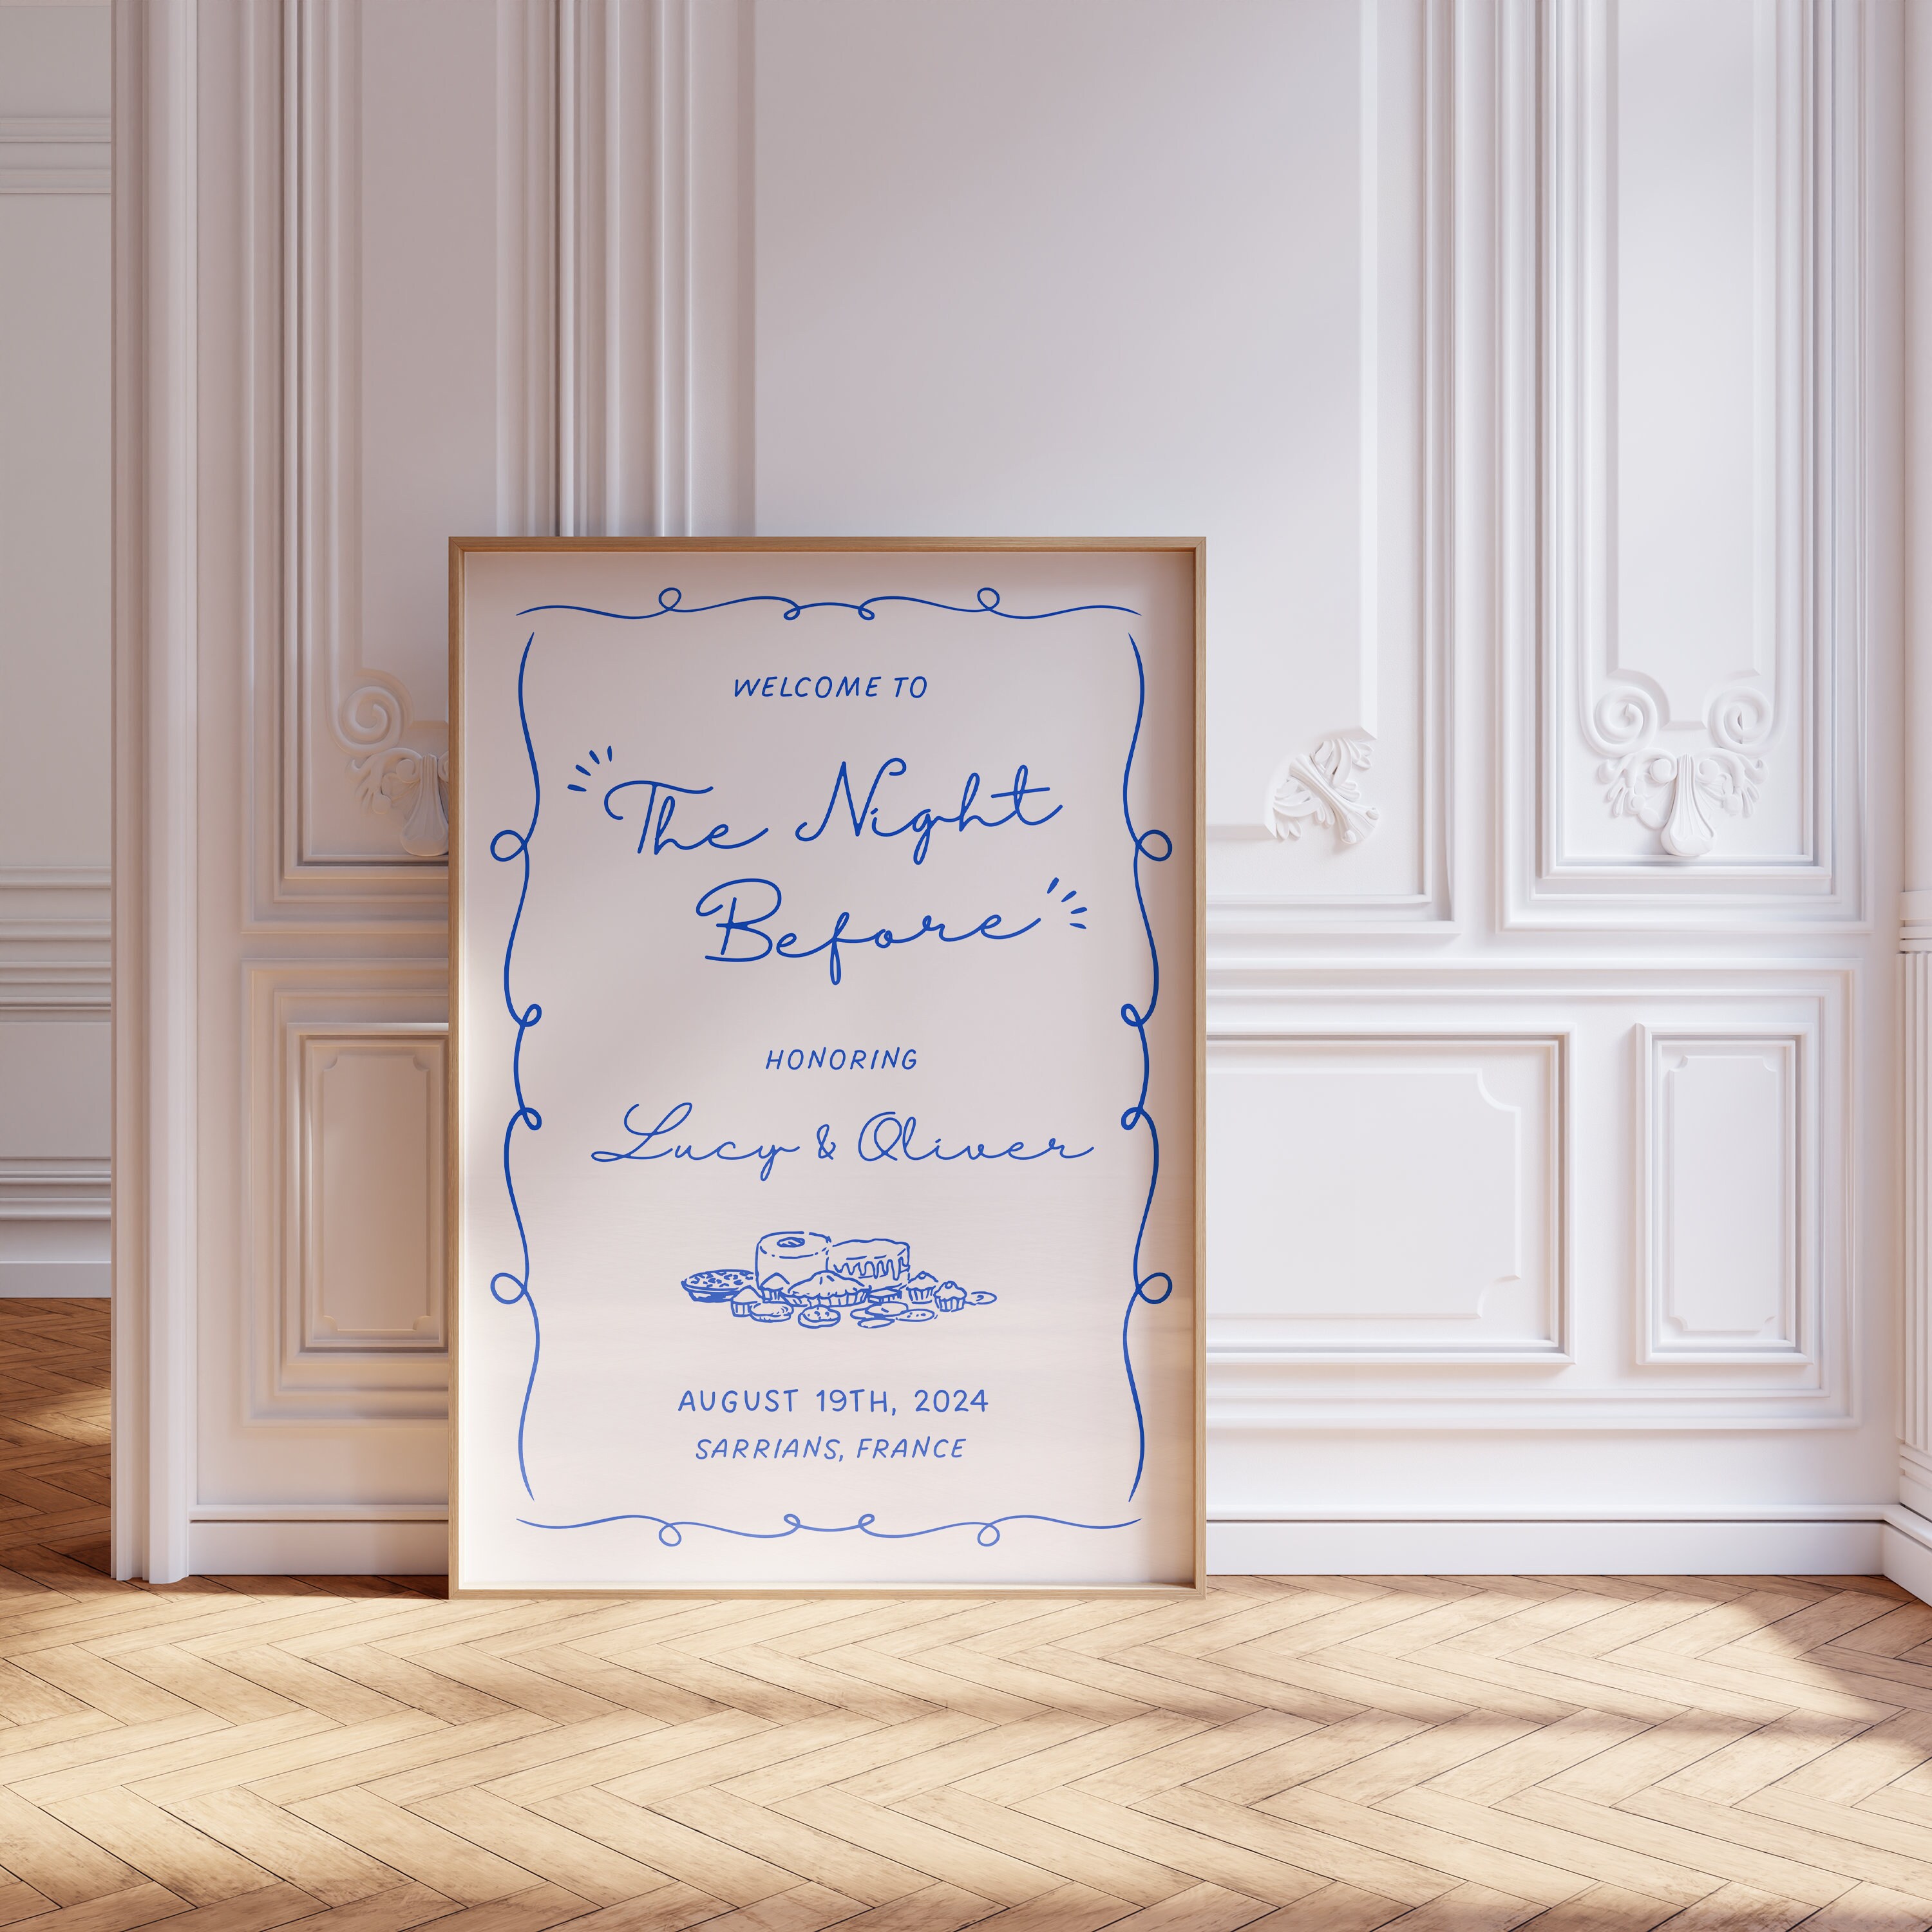 WELCOME TO
The Night
Before
HONORING
Lucy & Oliver
AUGUST 19TH, 2024
SARRIANS, FRANCE